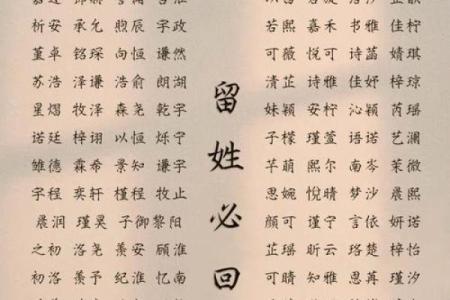 祈安 承允 煦辰 宇政
堇卓 铭琛 向恒 谦然
苏浩 泽谦 浩俞 朗湖
星熠 牧泽 森尧 乾宇
诺廷 梓诩 以恒 烁宁
雒德 霖希 景知 谦宇
宇程 奕轩 槿程 牧止
晨润 瑾昊 子御 黎阳
之初 洛尧 羡安 顾淮
初洛 羡予 纪淮 忆南
留姓必回
若熙 嘉禾 书雅 佳柠
可薇 悦可 诗菡 婧琪
清芷 诗雅 佳妤 梓琼
妹颖 安柠 沁颖 芮瑶
子檬 瑾萱 语诺 艺澜
芊萌 熙尔 南岑 茉微
思婉 悦晴 梦沙 晨熙
颜可 瑾宁 言依 妍诺
芷瑶 昕云 珞楚 梓怡
可晴 知雅 思苒 瑾